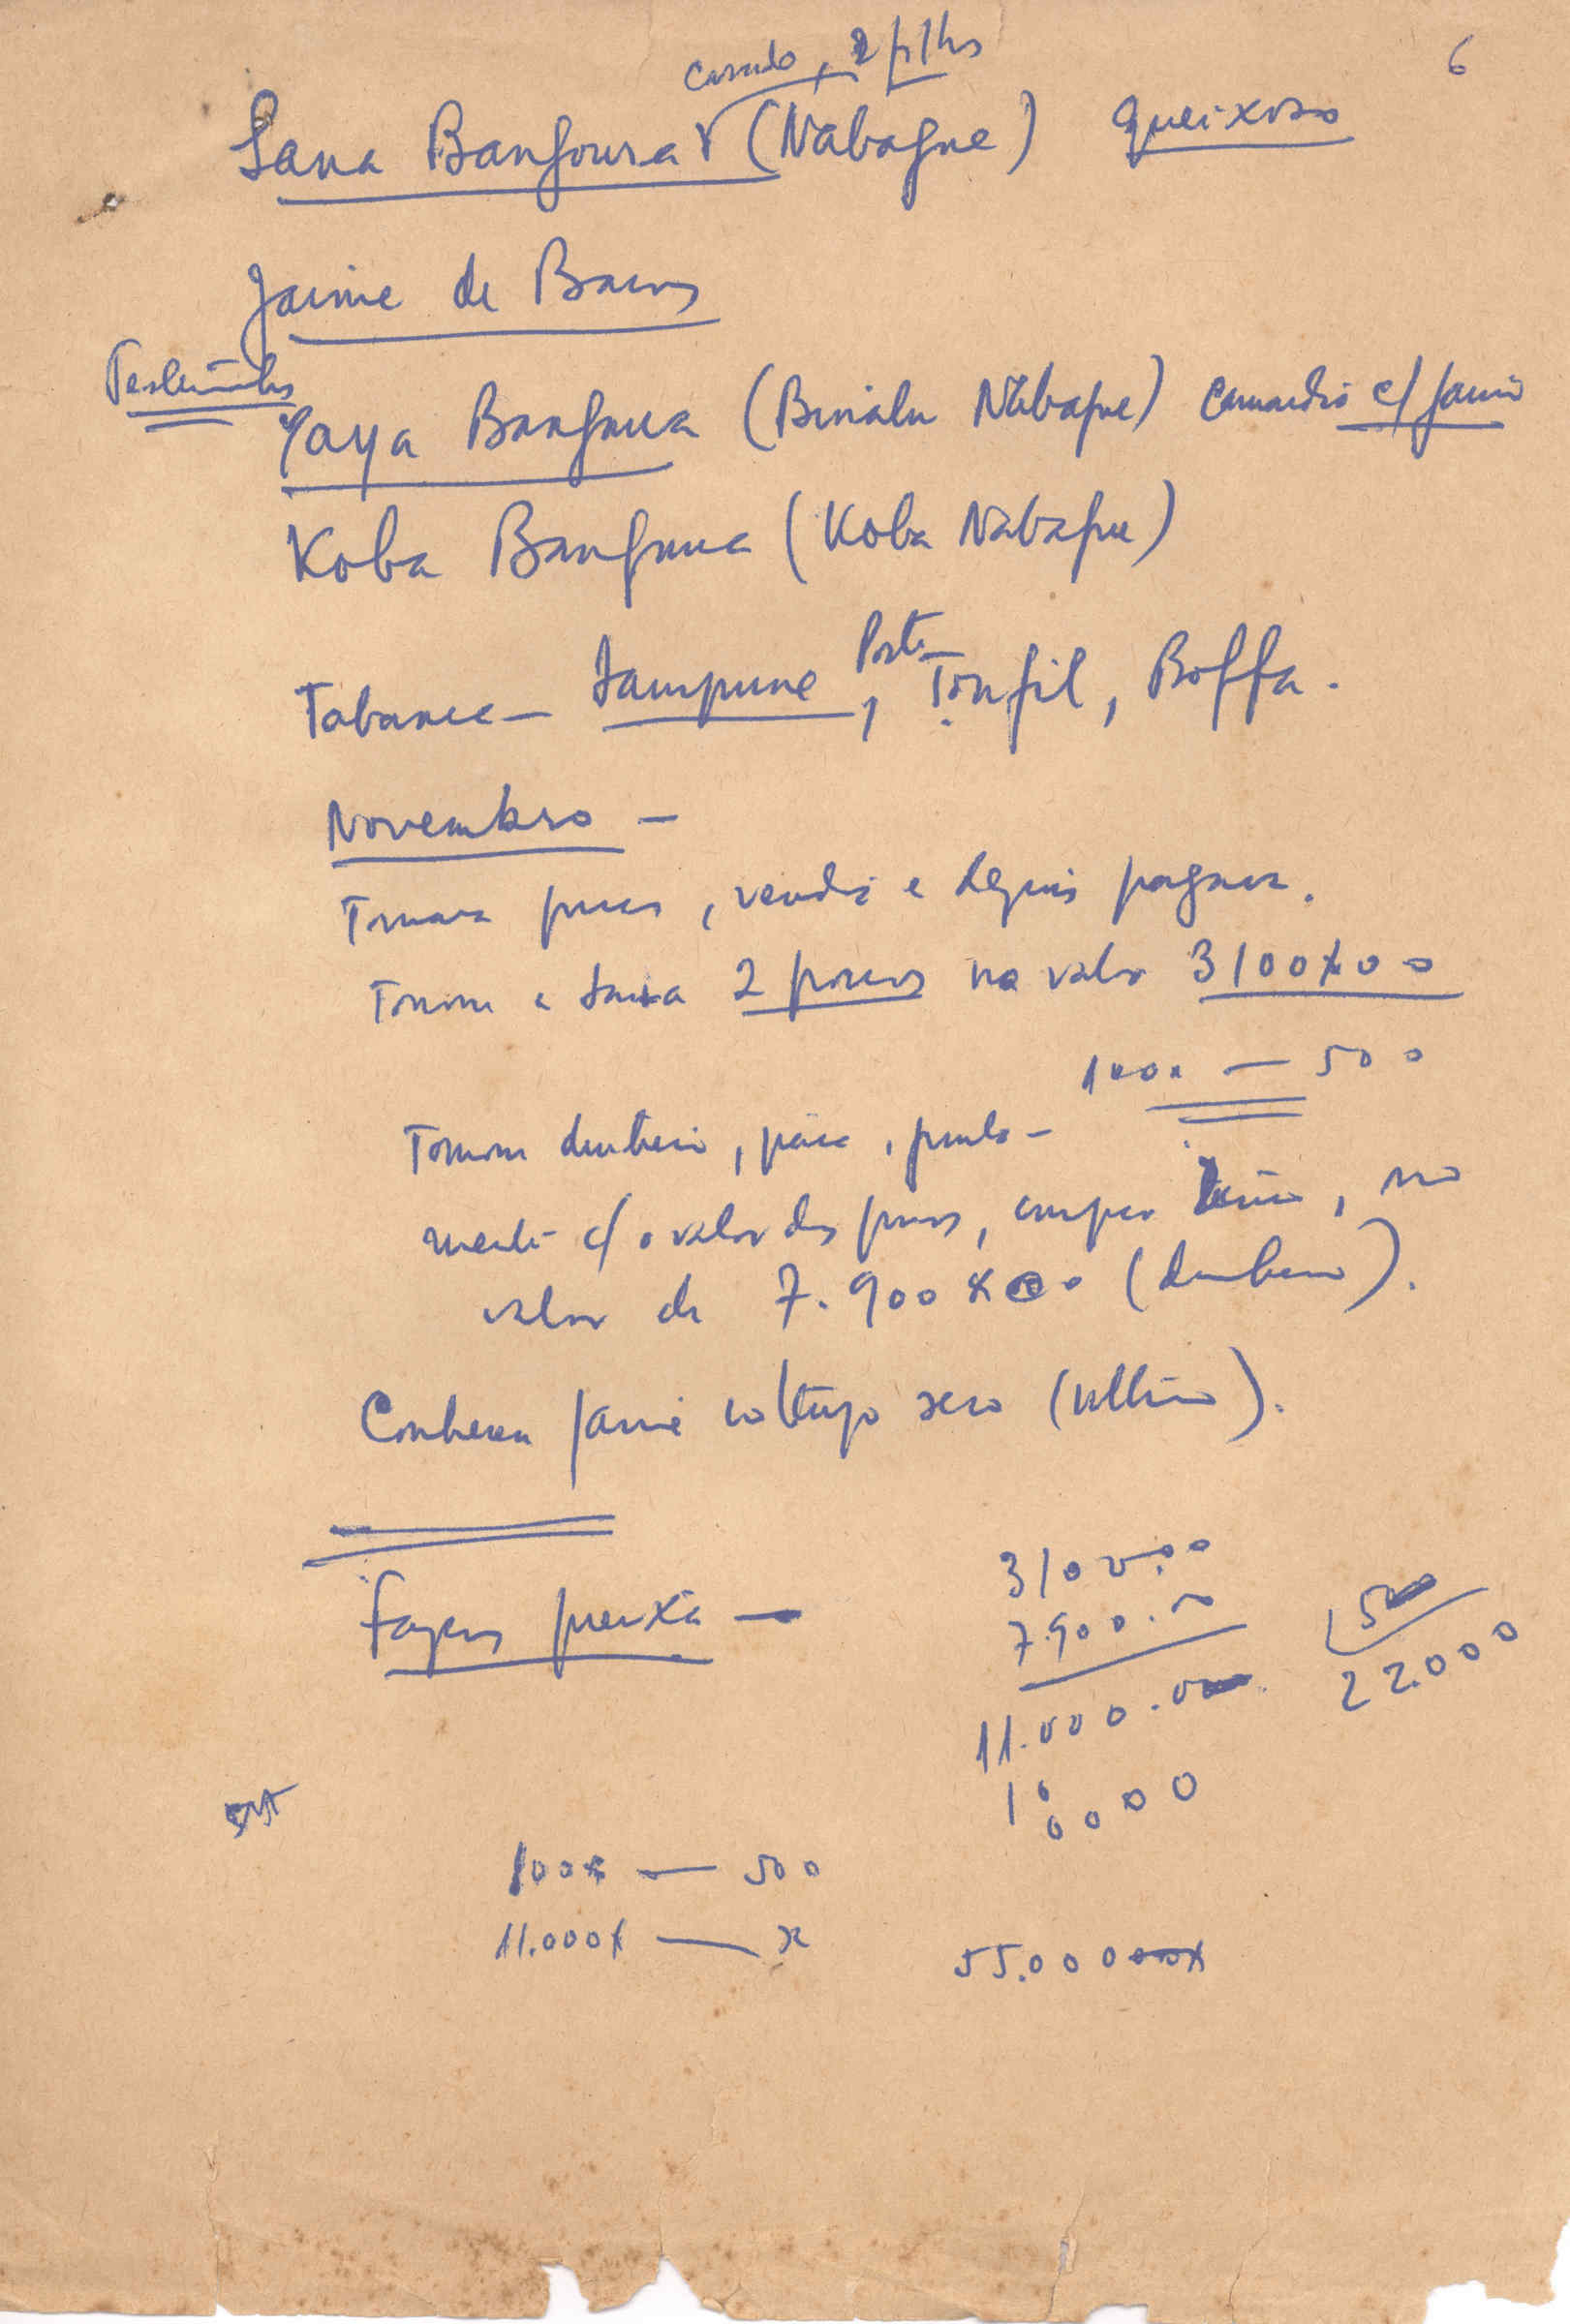 6
casado, 2 filhos
Sana Bangoura (Nabagne) queixoso
Jaime de Barros
Testemunhas
Yaya Bangoura (Binalu Nabagne) c/ Jaime
Koba Bangoura (Koba Nabagne)
Tabanca — Sampune, Porte Tonfil, Boffa.
Novembro —
Tomava porcos, vendia e depois pagava.
Tomou a Sana 2 porcos no valor 3100x00
100x — 500
Tomou dinheiro, para, junta-
mente c/ o valor dos porcos, comprar, no
valor de 7.900x00 (dinheiro).
Conhecera Jaime há tempo seco (último).
Fazem queixa —
3100.00
7.900.00
11.000.00
10000
500
22.000
100x — 500
11.000x — x
55.000